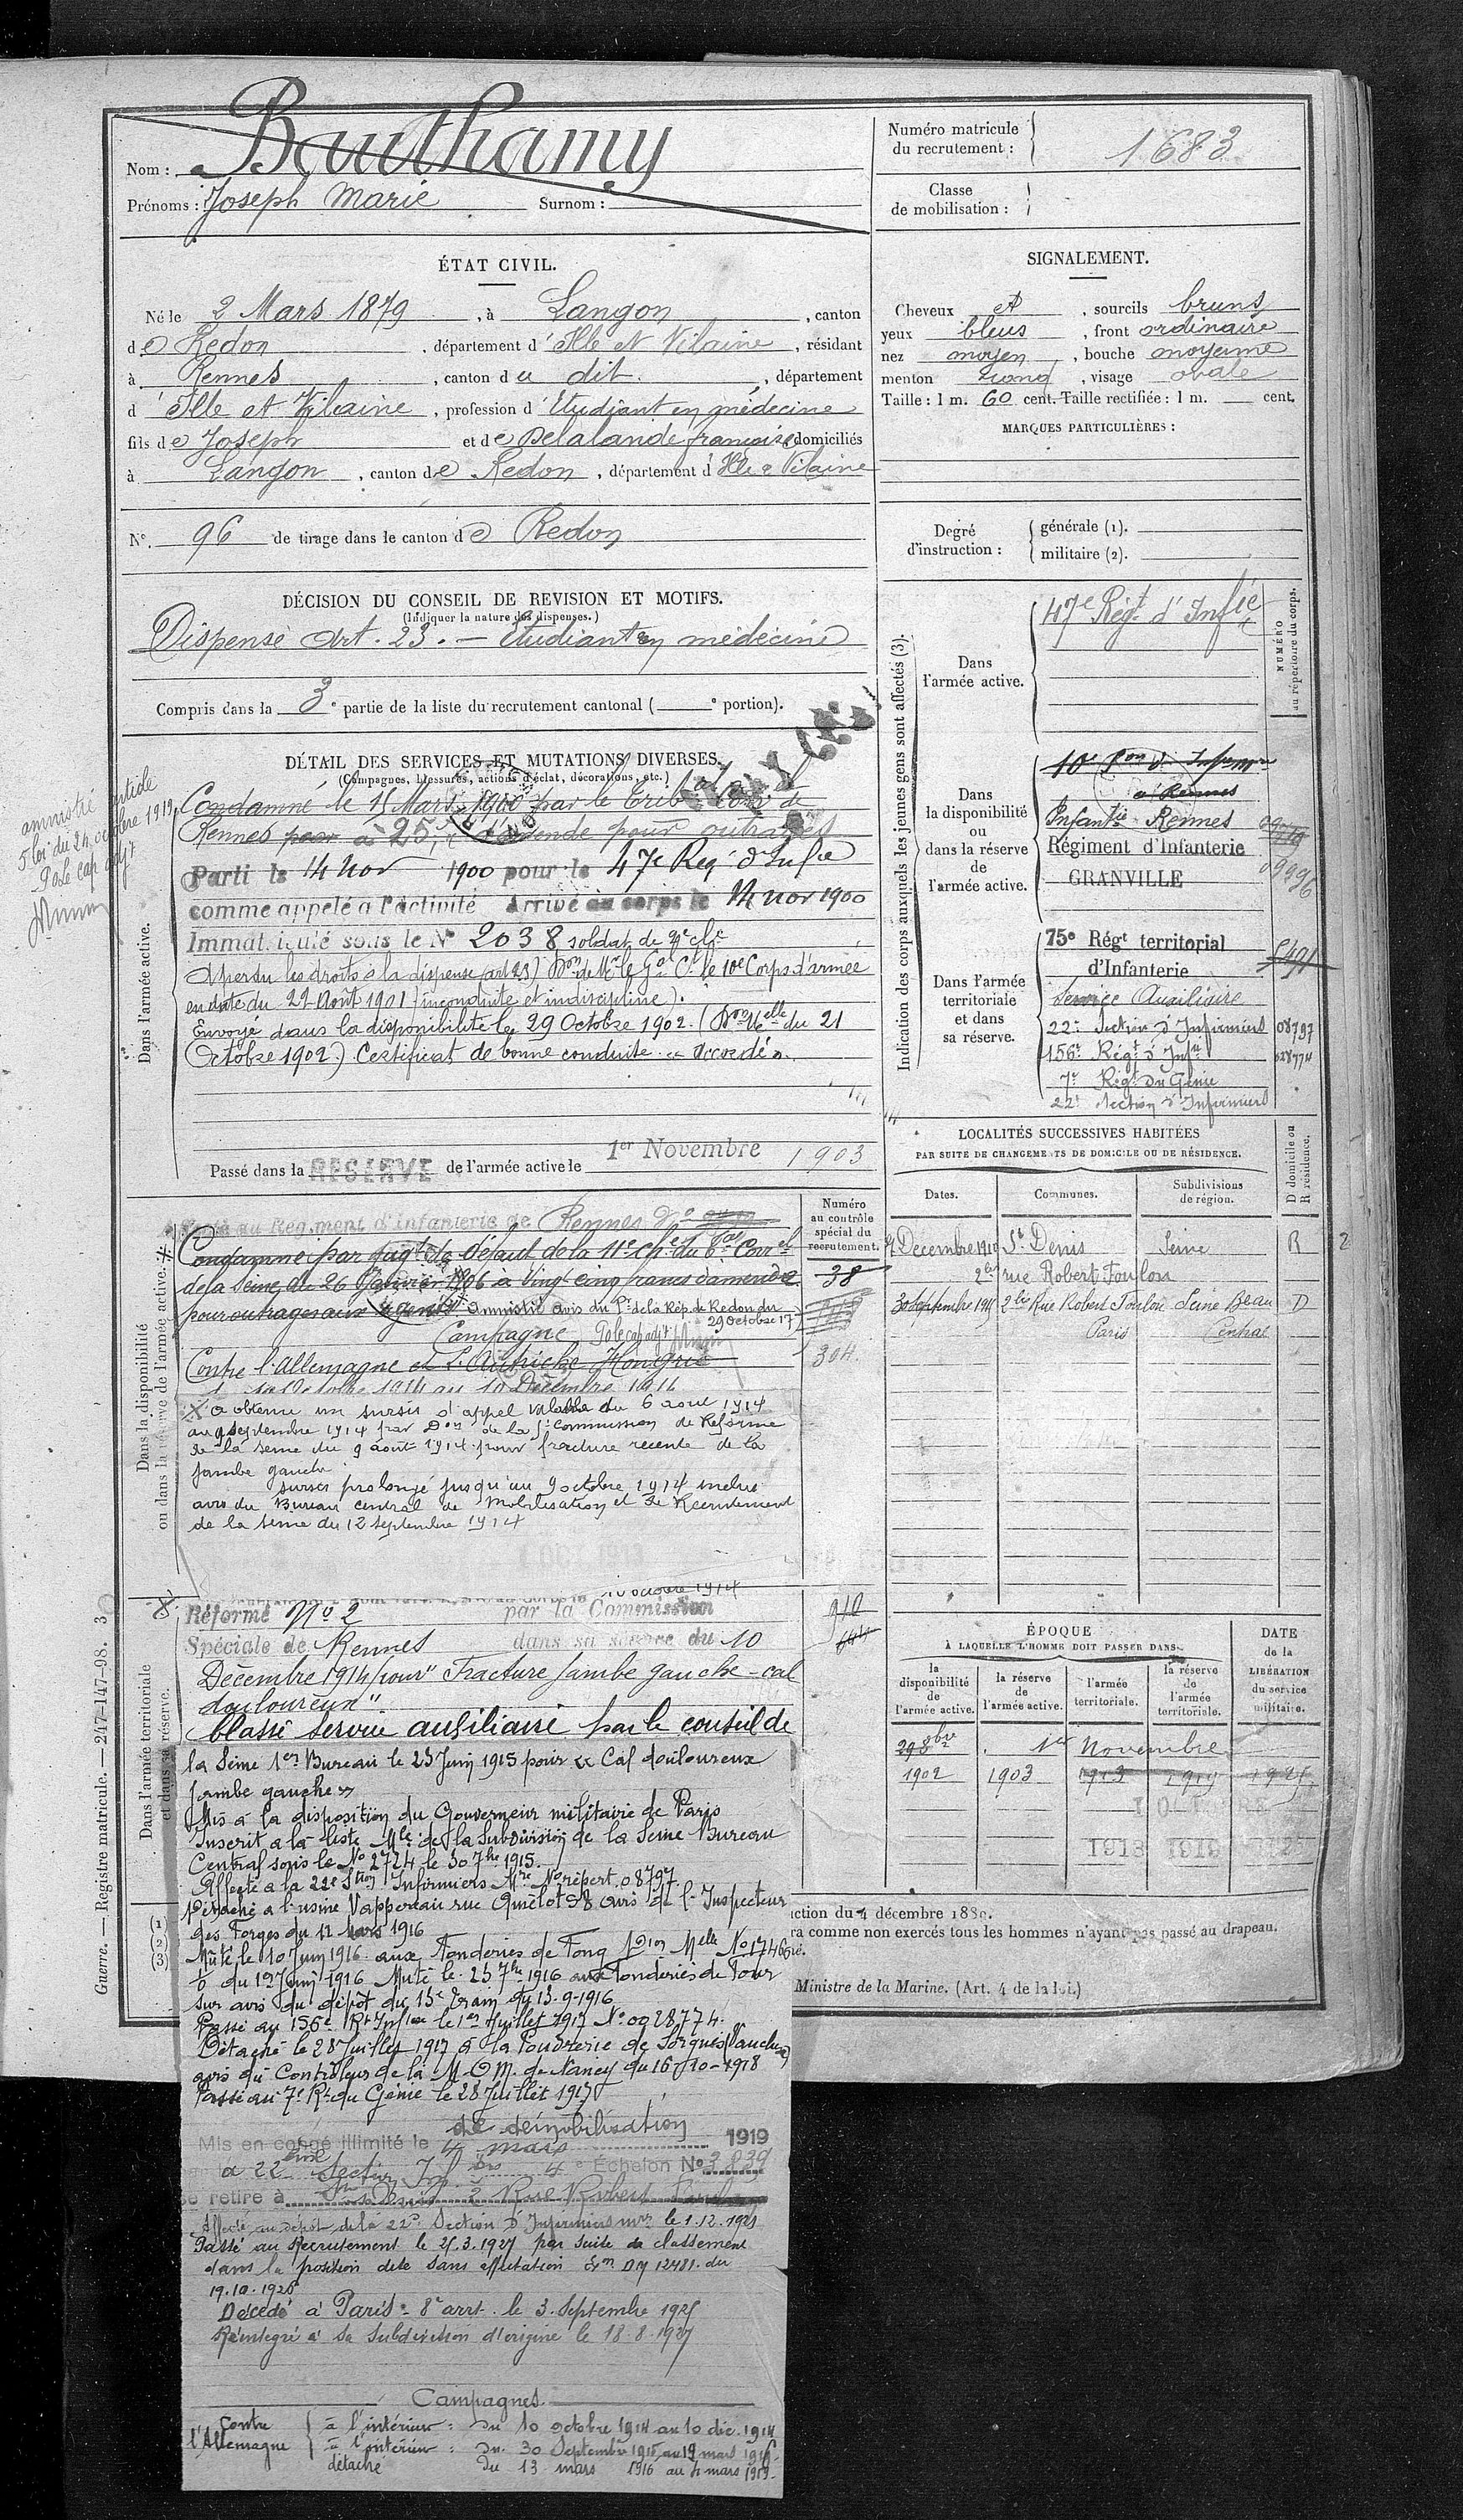 Nom : Bauthamy
Prénoms : Joseph Marie Surnom :
Numéro matricule du recrutement : 1683
Classe de mobilisation :
ÉTAT CIVIL.
Né le 2 Mars 1879, à Langon, canton
de Redon, département d'Ille et Vilaine, résidant
à Rennes, canton du dit, département
d'Ille et Vilaine, profession d'Etudiant en médecine
fils de Joseph et de Delalande françoise domiciliés
à Langon, canton de Redon, département d'Ille & Vilaine
N°. 96 de tirage dans le canton de Redon
SIGNALEMENT.
Cheveux et, sourcils bruns
yeux bleus, front ordinaire
nez moyen, bouche moyenne
menton rond, visage ovale
Taille : 1 m. 60 cent. Taille rectifiée : 1 m. cent.
MARQUES PARTICULIÈRES :
Degré d'instruction : générale (1).
militaire (2).
DÉCISION DU CONSEIL DE REVISION ET MOTIFS.
(Indiquer la nature des dispenses.)
Dispensé Art. 23. — Etudiant en médecine
Compris dans la 3e partie de la liste du recrutement cantonal ( e portion).
DÉTAIL DES SERVICES ET MUTATIONS DIVERSES.
(Campagnes, blessures, actions d'éclat, décorations, etc.)
Condamné le 15 Mars 1900 par le Tribal Corr de
Rennes pour à 25 f d'amende pour outrages
Parti le 14 nov 1900 pour le 47e Reg d'Infie
comme appelé à l'activité Arrivé au corps le 14 nov 1900
Immatriculé sous le N° 2038 soldat de 2e cle
A perdu les droits à la dispense (art 23) Don de Mr le Gal Ct le 10e Corps d'armée
en date du 22 Août 1901 (inconduite et indiscipline).
Envoyé dans la disponibilité le 29 Octobre 1902. (Don Melle du 21
Octobre 1902.) Certificat de bonne conduite "Accordé".
Passé dans la RÉSERVE de l'armée active le 1er Novembre 1903
amnistié article
5 loi du 24 octobre 1919
P. ole cap adjt
Dans l'armée active.
Indication des corps auxquels les jeunes gens sont affectés (3).
NUMÉRO au répertoire du corps.
Dans l'armée active.
47e Régt d'Infie
Dans la disponibilité ou dans la réserve de l'armée active.
10e Son d'Infirm
à Rennes
Infantie Rennes
Régiment d'Infanterie
GRANVILLE
09996
Dans l'armée territoriale et dans sa réserve.
75e Régt territorial
d'Infanterie
Service Auxiliaire
22e Section d'Infirmiers 08797
156e Régt d'Infie 028774
7e Régt du Génie
22e Section d'Infirmiers
LOCALITÉS SUCCESSIVES HABITÉES
PAR SUITE DE CHANGEMENTS DE DOMICILE OU DE RÉSIDENCE.
D domicile ou R résidence.
Dates. Communes. Subdivisions de région.
Decembre 1910 St Denis Seine R
2bis rue Robert Foulon
30 septembre 1915 2 bis Rue Robert Foulon Seine Beau D
Paris Central
Dans la disponibilité ou dans la réserve de l'armée active.
Numéro au contrôle spécial du recrutement.
au Régiment d'Infanterie de Rennes
Condamné par jugt de défaut de la 11e che du Bal Correl
de la Seine du 26 Janvier 1906 à Vingt cinq francs d'amende
pour outrages aux agents amnistié avis du Pr de la Rép. de Redon du
29 octobre 17
38
304
Campagne
Contre l'Allemagne et l'Autriche Hongrie
Octobre 1914 au 10 Décembre 1914
X a obtenu un sursis d'appel valable du 6 aout 1914
au 9 septembre 1914 par Don de la Commission de Réforme
de la Seine du 9 août 1914 pour fracture récente de la
jambe gauche
sursis prolongé jusqu'au 9 octobre 1914 inclus
avis du Bureau central de Mobilisation et de Recrutement
de la Seine du 12 septembre 1914
octobre 1914
Dans l'armée territoriale et dans sa réserve.
Réformé No 2 par la Commission
Spéciale de Rennes dans sa séance du 10
Décembre 1914 pour "Fracture jambe gauche - cal
douloureux"
910
Classé service auxiliaire par le conseil de
la Seine 1er Bureau le 23 Juin 1915 pour "Cal douloureux
jambe gauche"
Mis à la disposition du Gouverneur militaire de Paris
Inscrit à la liste Mle de la Subdivision de la Seine Bureau
Central sous le No 2724 le 30 7bre 1915.
Affecté à la 22e Stion Infirmiers Mre No répert. 08797
Détaché à l'usine Vappereau rue 98 avis de l'Inspecteur
des Forges du 12 Mars 1916
Muté le 10 Juin 1916 aux Fonderies de Foug Don Melle No 17466
du 19 Juin 1916 Muté le 25 7bre 1916 aux Fonderies de Foug
sur avis du dépôt du 13e Train du 13-9-1916
Passé au 156e Rt Infie le 1er Juillet 1917 No 0028774.
Détaché le 28 Juillet 1917 à la Poudrerie de Sorgues (Vaucluse)
avis du Contrôleur de la M.O.M. de Nancy du 16-10-1918
Passé au 7e Rt du Génie le 28 Juillet 1917
de démobilisation
Mis en congé illimité le 4 mars 1919
a 22eme Section Inf 4e Échelon No 3839
se retire à St Denis 2 Rue Robert
Affecté au dépôt de la 22e Section d'Infirmiers mres le 1.12.1921
Passé au Recrutement le 25.3.1927 par suite de classement
dans la position dite sans affectation Don DM 12481. du
19.10.1926
Décédé à Paris 8e arrt. le 3 Septembre 1925
Réintégré à sa subdivision d'origine le 18.8.1927
Campagnes
Contre l'Allemagne
à l'intérieur : du 10 octobre 1914 au 10 déc. 1914
à l'intérieur : du 30 Septembre 1915 au 12 mars 1916
détaché du 13 mars 1916 au 4 mars 1919.
ÉPOQUE
À LAQUELLE L'HOMME DOIT PASSER DANS
DATE de la LIBÉRATION du service militaire.
la disponibilité de l'armée active. la réserve de l'armée active. l'armée territoriale. la réserve de l'armée territoriale.
29 8bre 1er Novembre
1902 1903 1913 1919 1925
Guerre. — Registre matricule. — 247-147-98.
(1)
(2)
(3)
ction du 4 décembre 1889.
ra comme non exercés tous les hommes n'ayant pas passé au drapeau.
Ministre de la Marine. (Art. 4 de la loi.)